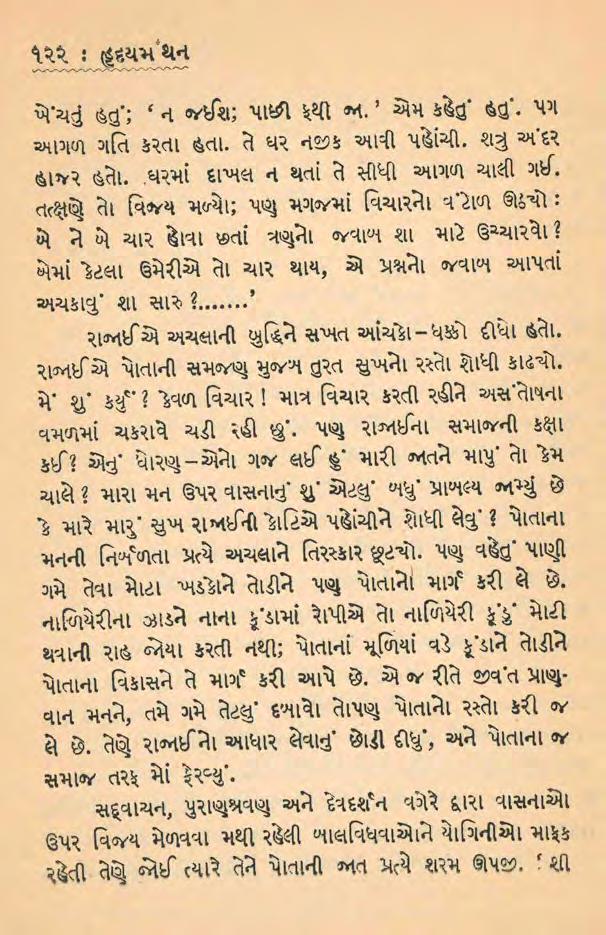 ૧૨૨ : હૃદયમંથન
ખેંચતું હતું; ‘ ન જઈશ; પાછી ફરી જા. ’ એમ કહેતું હતું. પગ
આગળ ગતિ કરતા હતા. તે ઘર નજીક આવી પહોંચી. શત્રુ અંદર
હાજર હતો. ઘરમાં દાખલ ન થતાં તે સીધી આગળ ચાલી ગઈ.
તત્ક્ષણે તો વિજય મળ્યો; પણ મગજમાં વિચારનો વંટોળ ઊઠ્યો :
બે ને બે ચાર હોવા છતાં ત્રણનો જવાબ શા માટે ઉચ્ચારવો ?
બેમાં કેટલા ઉમેરીએ તો ચાર થાય, એ પ્રશ્નનો જવાબ આપતાં
અચકાવું શા સારુ ?.......’
રાજાઈએ અચલાની બુદ્ધિને સખત આંચકો–ધક્કો દીધો હતો.
રાજાઈએ પોતાની સમજણ મુજબ તુરત સુખનો રસ્તો શોધી કાઢ્યો.
મેં શું કર્યું ? કેવળ વિચાર ! માત્ર વિચાર કરતી રહીને અસંતોષના
વમળમાં ચકરાવે ચડી રહી છું. પણ રાજાઈના સમાજની કક્ષા
કઈ ? એનું ધોરણ–એનો ગજ લઈ હું મારી જાતને માપું તો કેમ
ચાલે ? મારા મન ઉપર વાસનાનું શું એટલું બધું પ્રાબલ્ય જામ્યું છે
કે મારે મારું સુખ રાજાઈની કોટિએ પહોંચીને શોધી લેવું ? પોતાના
મનની નિર્બળતા પ્રત્યે અચલાને તિરસ્કાર છૂટ્યો. પણ વહેતું પાણી
ગમે તેવા મોટા ખડકોને તોડીને પણ પોતાનો માર્ગ કરી લે છે.
નાળિયેરીના ઝાડને નાના કૂંડામાં રોપીએ તો નાળિયેરી કૂંડું મોટી
થવાની રાહ જોયા કરતી નથી; પોતાનાં મૂળિયાં વડે કૂંડાને તોડીને
પોતાના વિકાસને તે માર્ગ કરી આપે છે. એ જ રીતે જીવંત પ્રાણ-
વાન મનને, તમે ગમે તેટલું દબાવો તોપણ પોતાનો રસ્તો કરી જ
લે છે. તેણે રાજાઈનો આધાર લેવાનું છોડી દીધું, અને પોતાના જ
સમાજ તરફ મોં ફેરવ્યું.
સદ્વાચન, પુરાણશ્રવણ અને દેવદર્શન વગેરે દ્વારા વાસનાઓ
ઉપર વિજય મેળવવા મથી રહેલી બાલવિધવાઓને યોગિનીઓ માફક
રહેતી તેણે જોઈ ત્યારે તેને પોતાની જાત પ્રત્યે શરમ ઊપજી. ‘ શી